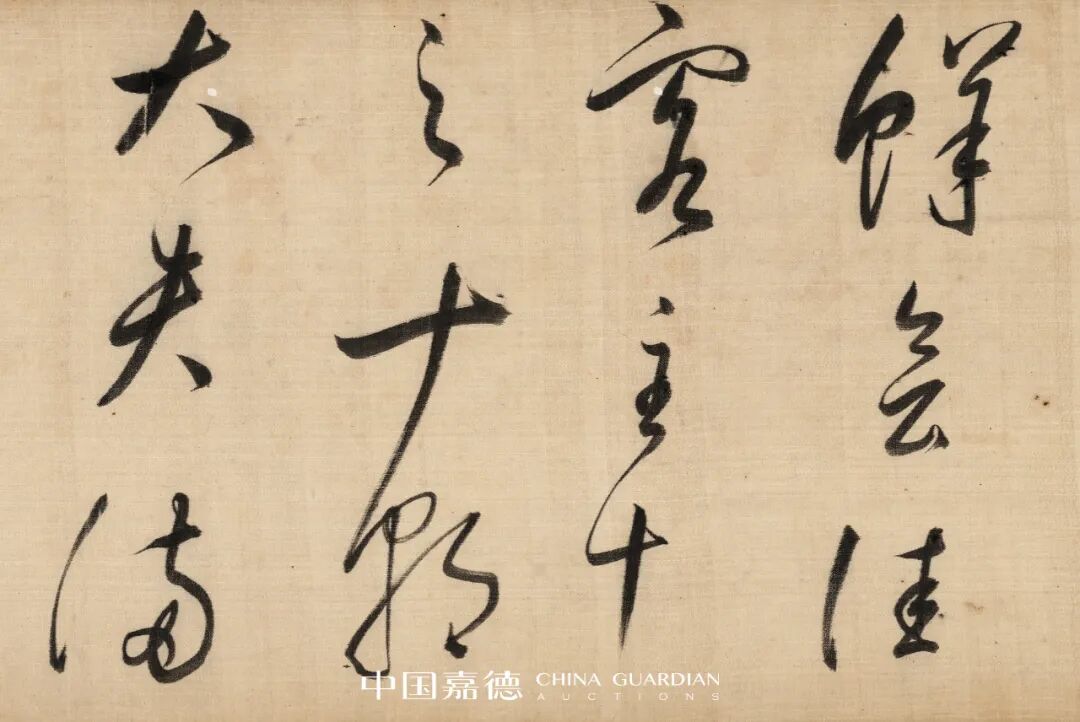 鮮会佳
客主十
之十朝
大夫滿
中国嘉德 CHINA GUARDIAN
AUCTIONS